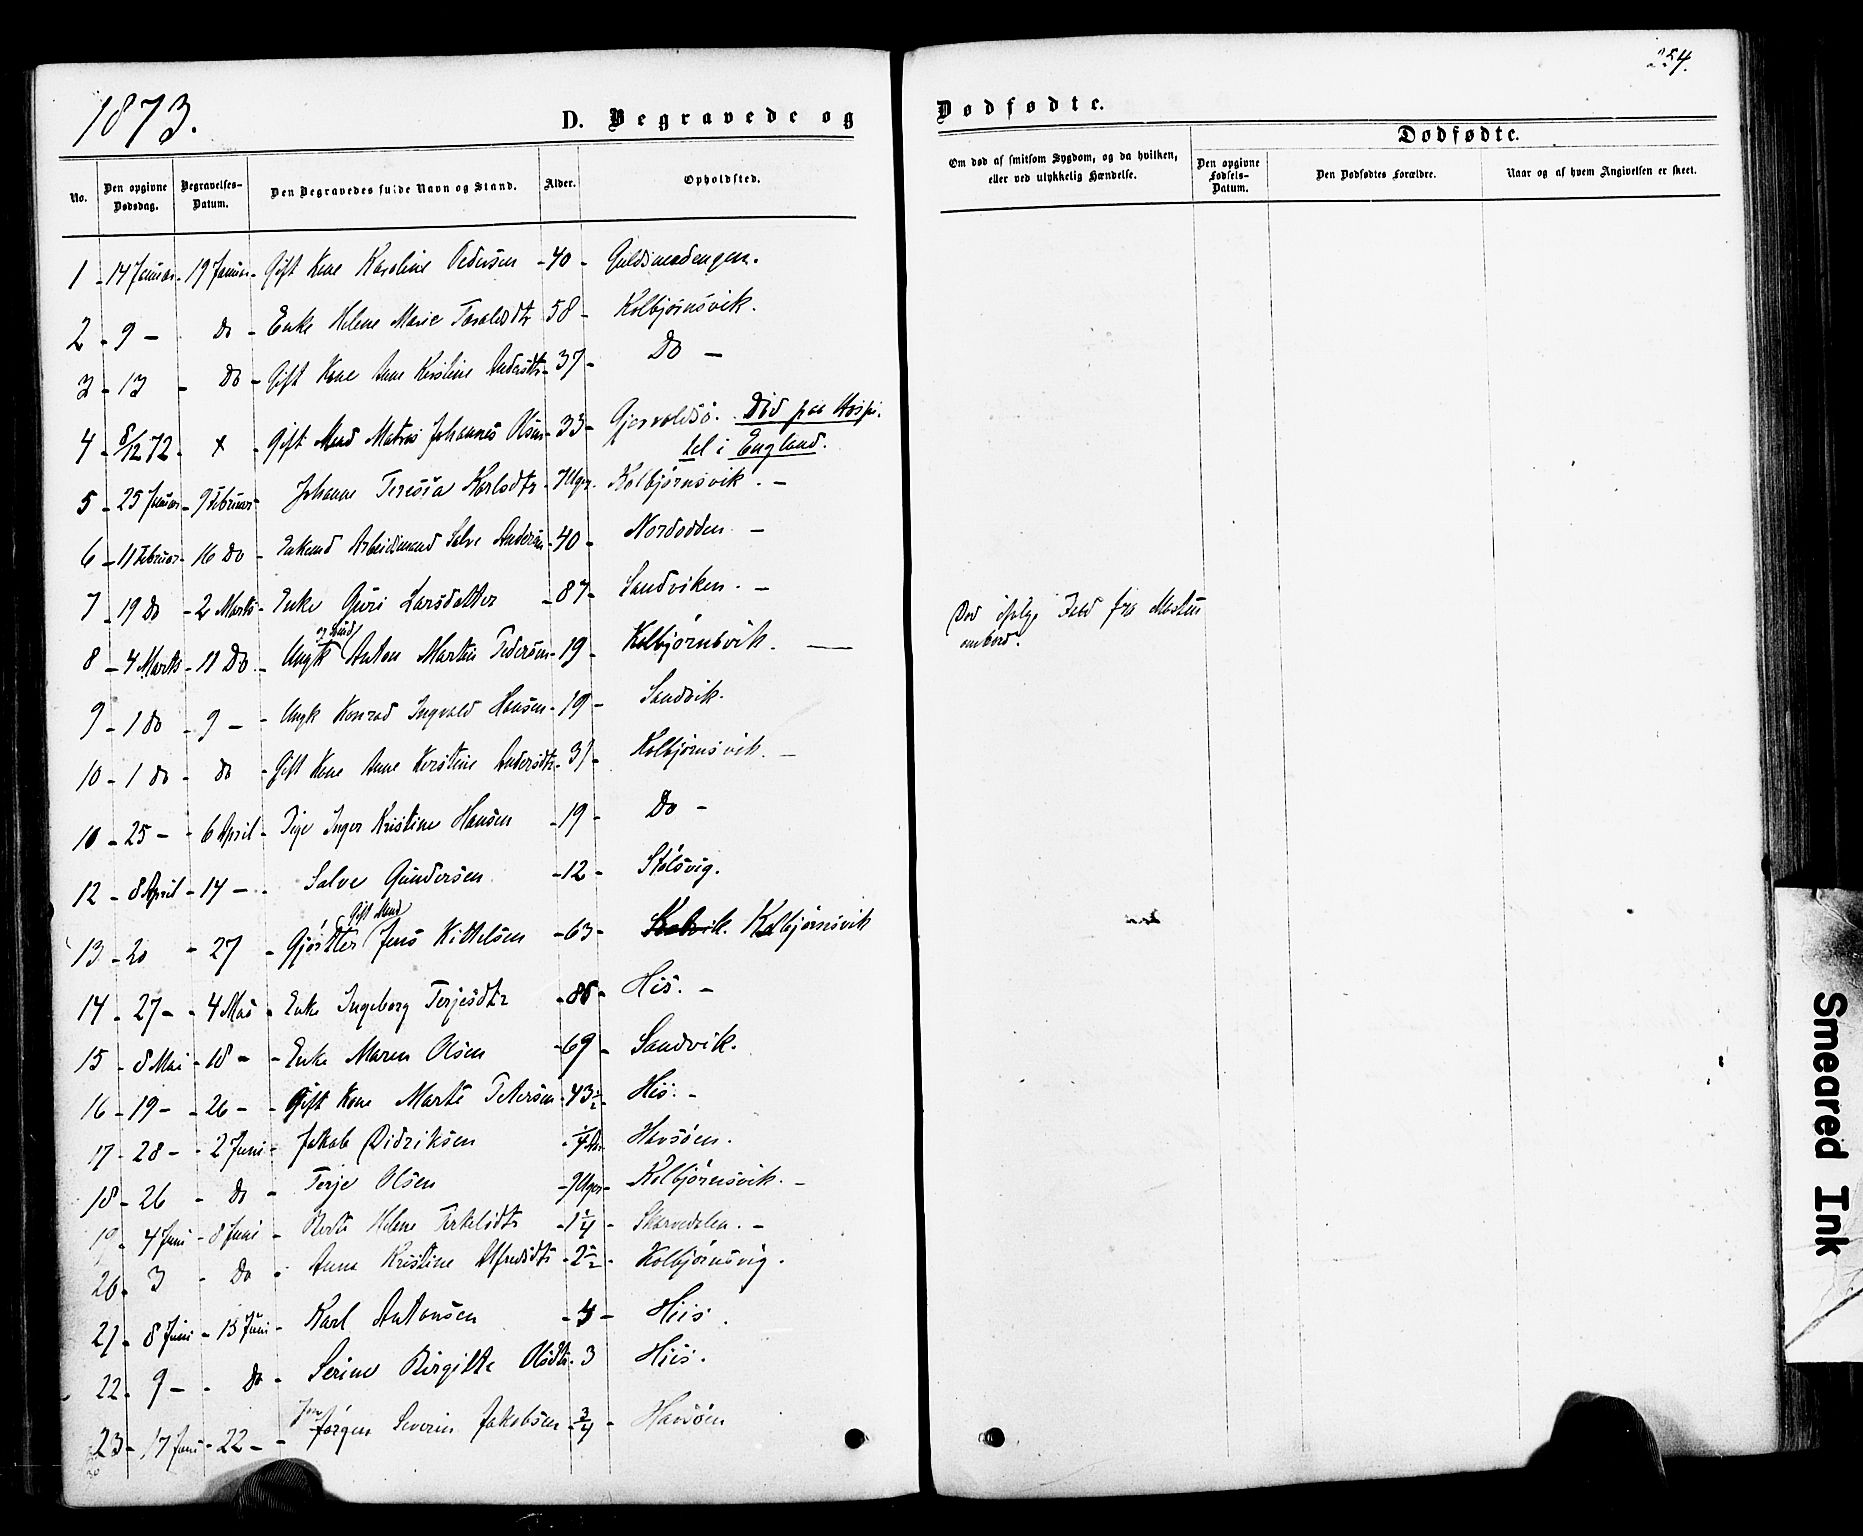 254.
1873.
D. Begravede og
Dødfødte.
No.
Den opgivne Dødsdag.
Begravelses-Datum.
Den Begravedes fulde Navn og Stand.
Alder.
Opholdsted.
Om død af smitsom Sygdom, og da hvilken, eller ved ulykkelig Hændelse.
Dødfødte.
Den opgivne Fødsels-Datum.
Den Dødfødtes Forældre.
Naar og af hvem Angivelsen er skeet.
1 - 14 Januar - 19 Januar - Gift Kone Karoline Pedersen - 40 - Guldsmedengen.
2 - 9 - Do - Enke Helene Marie Taraldsdtr 58 - Kolbjørnsvik.
3 - 13 - Do - Gift Kone Anne Kirstine Andersdtr - 37 - Do -
4 - 8/12 72 - x - Gift Mand Matros Johannes Olsen - 33 - Gjervoldsø. Død paa Hospi-
tal i England.
5 - 25 Januar - 9 Februar - Johanne Teresia Karlsdtr - 7 Uger - Kolbjørnsvik. -
6 - 11 Februar - 16 Do - Enkemd Arbeidsmand Salve Andersen - 40 - Nordodden -
7 - 19 Do - 2 Marts - Enke Guri Larsdatter - 87 - Sandviken. -
8 - 4 Marts - 11 Do - Ungk Anton Martin Pedersen - 19 - Kolbjørnsvik. - Død ifølge Fald fra Masten
ombord.
9 - 1 Do - 9 - - Ungk Konrad Ingvald Hansen - 19 - Sandvik.
10 - 1 Do - Do - Gift Kone Anne Kirstine Andersdtr - 37 - Kolbjørnsvik. -
10 - 25 - - 6 April - Pige Inger Kristine Hansen - 19 - Do -
12 - 8 April - 14 - - Salve Gundersen - 12 - Stølsvig.
Gift Mand
13 - 20 - 27 - Jens Kittelsen - 63 - Kolbjørnsvik
14 - 27 - - 4 Mai - Enke Ingeborg Terjesdtr - 86 - His. -
15 - 8 Mai - 18 - - Enke Maren Olsen - 69 - Sandvik.
16 - 19 - - 26 - - Gift Kone Marte Petersen - 43 1/2 - His. -
17 - 28 - - 2 Juni - Jakob Didriksen - 1/4 - Havsøen.
18 - 26 - Do - Terje Olsen - 9 Uger - Kolbjørnsvik. -
19 - 4 Juni - 8 Juni - Berte Helene Terkelsdtr - 1 1/4 - Skarvedalen. -
20 - 3 - Do - Anna Kristine Alfredsdtr - 2 1/2 - Kolbjørnsvig.
21 - 8 Juni - 15 Juni - Karl Antonsen - 4 - Hiis.
22 - 9 - - Do - Serine Birgitte Olsdtr - 3 Hiis.
23 - 17 Juni - 22 - - Jørgen Severin Jakobsen - 3/4 - Havsøen
Smeared Ink